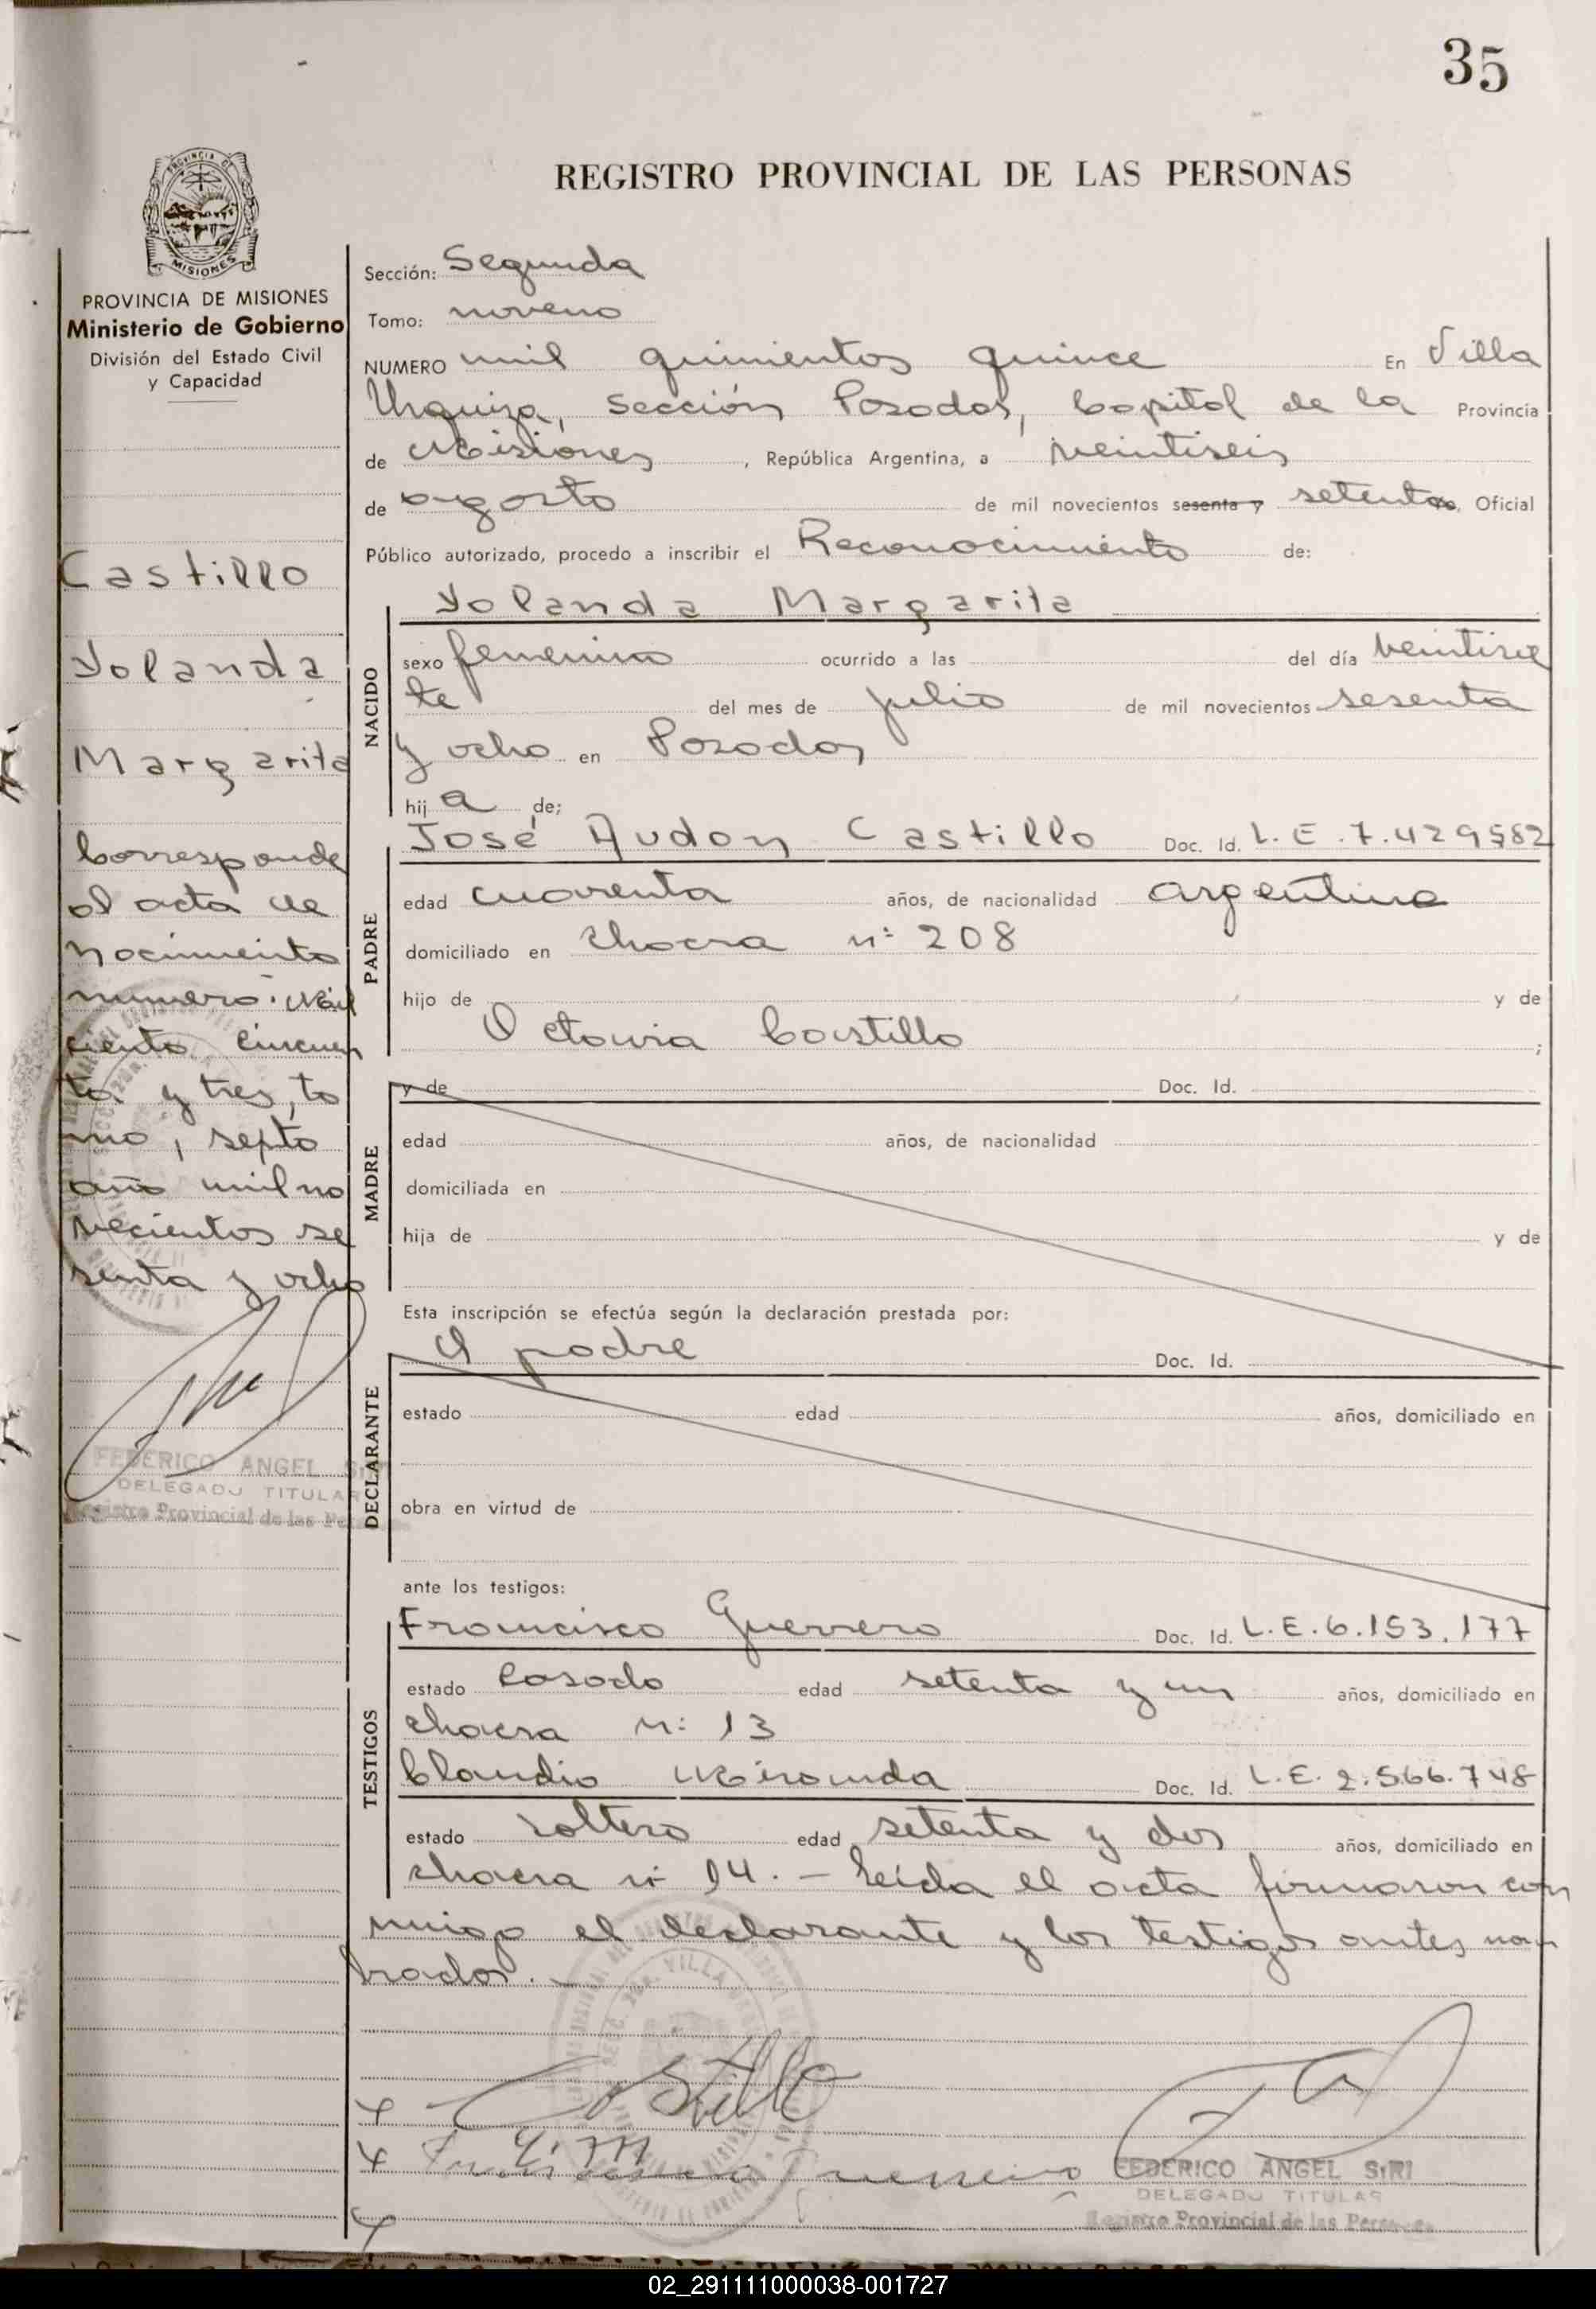 35
REGISTRO PROVINCIAL DE LAS PERSONAS
PROVINCIA DE MISIONES
Ministerio de Gobierno
División del Estado Civil
y Capacidad
Castillo
Yolanda
Margarita
Corresponde
al acta de
nacimiento
numero: Mil
ciento cincuen
ta y tres, to
mo, septo
año mil no
vecientos se
senta y ocho
FEDERICO ANGEL SIRI
DELEGADO TITULAR
Registro Provincial de las Per
Sección: Segunda
Tomo: noveno
NUMERO mil quinientos quince En Villa
Urquiza, Sección Posadas, Capital de la Provincia
de Misiones, República Argentina, a veintiseis
de agosto de mil novecientos sesenta y setenta, Oficial
Público autorizado, procedo a inscribir el Reconocimiento de:
Yolanda Margarita
NACIDO
sexo femenino ocurrido a las del día veintisie
te del mes de julio de mil novecientos sesenta
y ocho en Posadas
hija de;
José Audon Castillo Doc. Id. L.E.7.429582
PADRE
edad cuarenta años, de nacionalidad argentina
domiciliado en chacra nº 208
hijo de y de
Octavia Castillo ;
y de Doc. Id.
MADRE
edad años, de nacionalidad
domiciliada en
hija de y de
Esta inscripción se efectúa según la declaración prestada por:
El padre Doc. Id.
DECLARANTE
estado edad años, domiciliado en
obra en virtud de
ante los testigos:
Francisco Guerrero Doc. Id. L.E.6.153.177
TESTIGOS
estado casado edad setenta y un años, domiciliado en
chacra nº 13
Claudio Miranda Doc. Id. L.E. 2.566.748
estado soltero edad setenta y dos años, domiciliado en
chacra nº 14. - Leída el acta firmaron con
migo el declarante y los testigos antes nom
brados. -
Castillo
Francisco Guerrero
FEDERICO ANGEL SIRI
DELEGADO TITULAR
Registro Provincial de las Personas
02_291111000038-001727